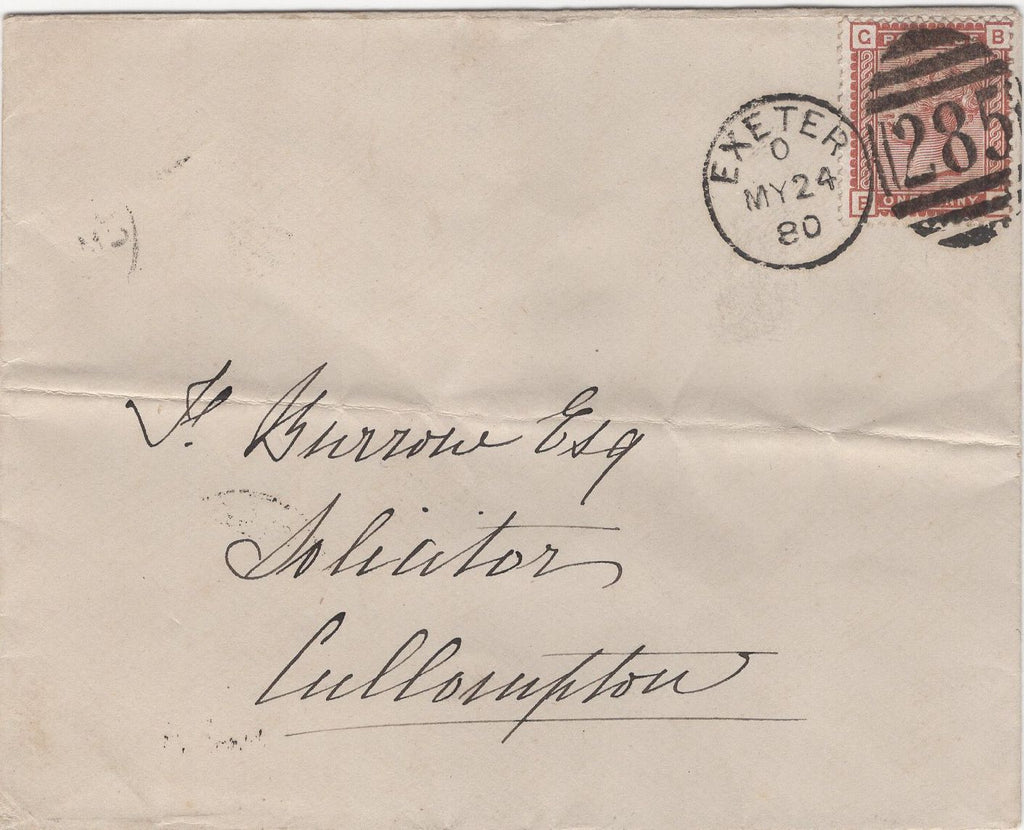 G B
EXETER
O
MY 24
80
285
E ONE PENNY
F. Burrow Esq
Solicitor
Cullompton